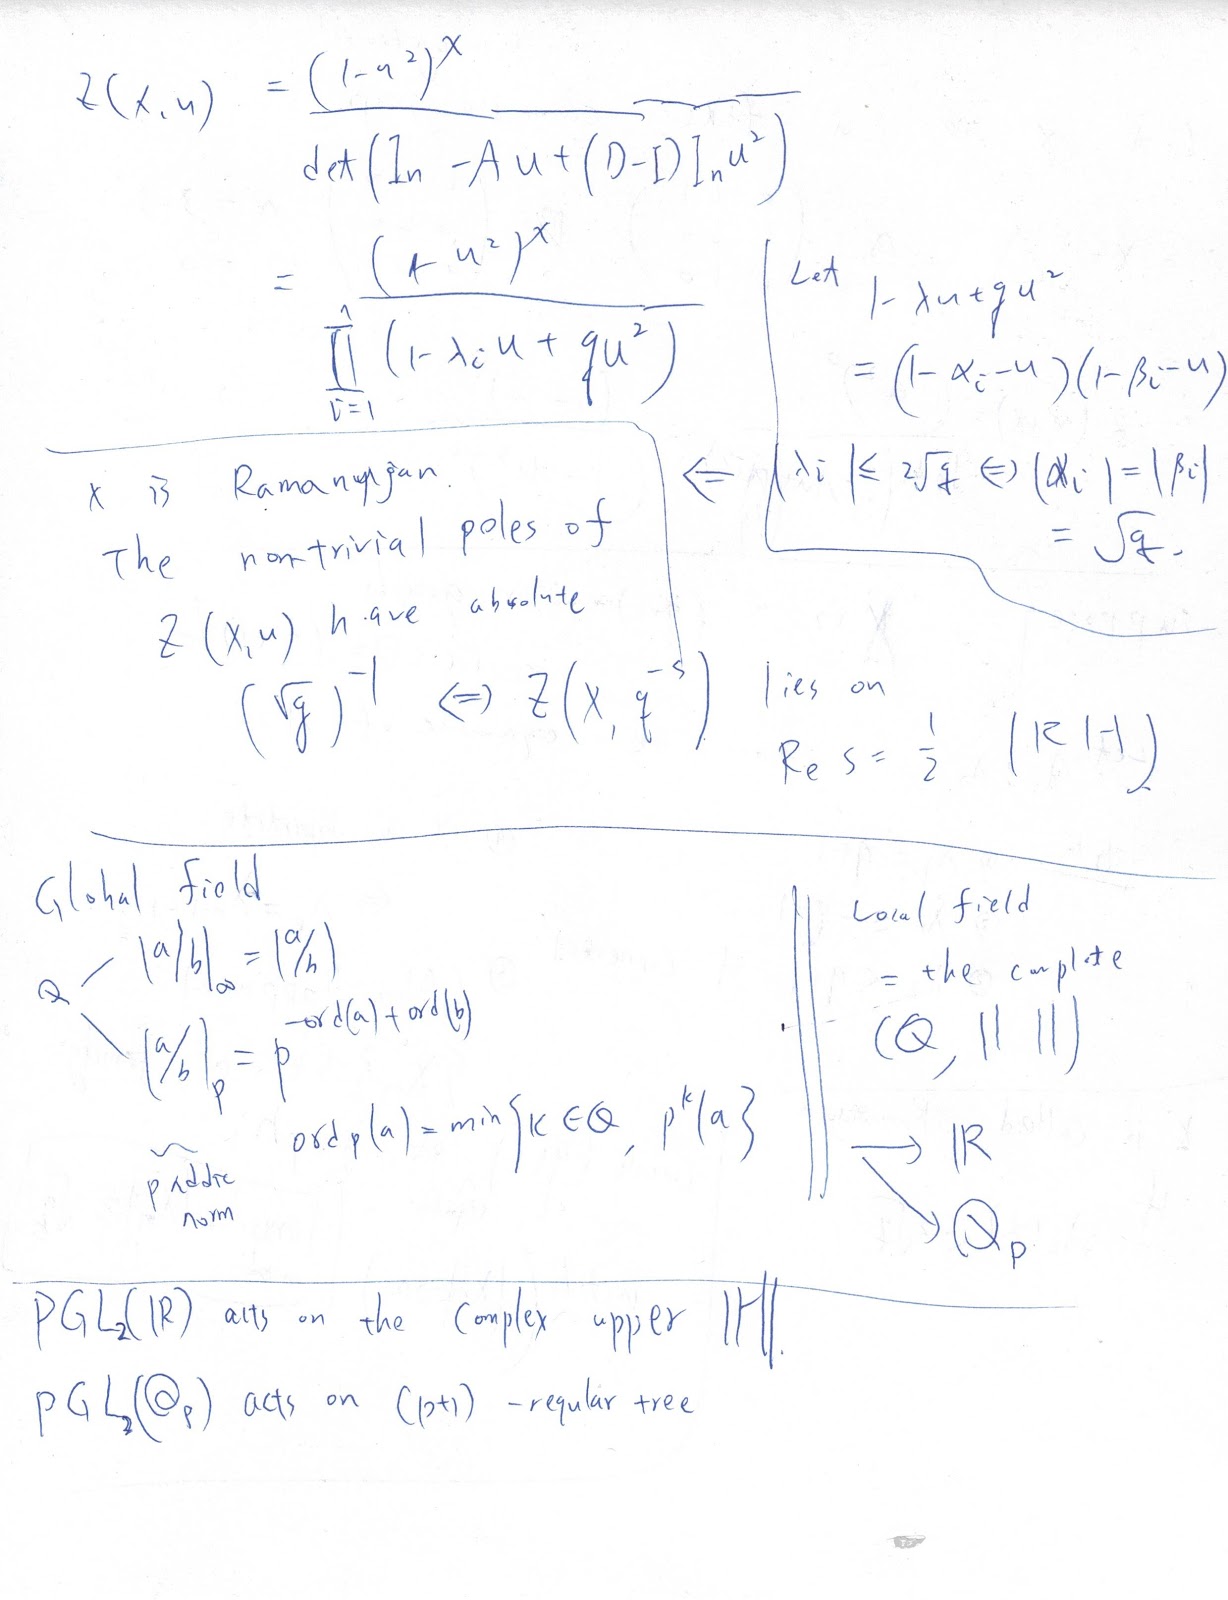 Z(X,u) = (1-u²)^χ / det(In -Au+(D-I)In u²)
= (1-u²)^χ / ∏_{i=1}^{n} (1-λi u + qu²)
Let 1-λu+qu²
= (1-αi-u)(1-βi-u)
⇐ |λi|≤ 2√q ⇔ |αi|=|βi|
= √q.
X is Ramanujan.
The nontrivial poles of
Z(X,u) have absolute
(√q)^{-1} ⇔ Z(X, q^{-s}) lies on
Re s = 1/2 (RH)
Global field
Q
|a/b|∞ = |a/b|
|a/b|p = p^{-ord(a)+ord(b)}
ordp(a) = min{k∈Q, p^k|a}
p addic
norm
Local field
= the complete
(Q, || ||)
→ R
↘ Qp
PGL2(R) acts on the complex upper H.
PGL2(Qp) acts on (p+1)-regular tree